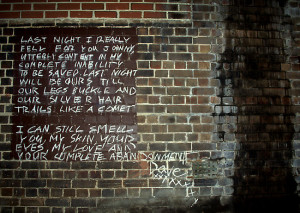 LAST NIGHT I REALLY
FELL FOR YOU JOHNNY,
UTTERLY CONTENT IN MY
COMPLETE INABILITY
TO BE SAVED. LAST NIGHT
WILL BE OURS TILL
OUR LEGS BUCKLE AND
OUR SILVER HAIR
TRAILS LIKE A COMET
I CAN STILL SMELL
YOU, MY SKIN, YOUR
EYES, MY LOVE AND
YOUR COMPLETE ABANDONMENT